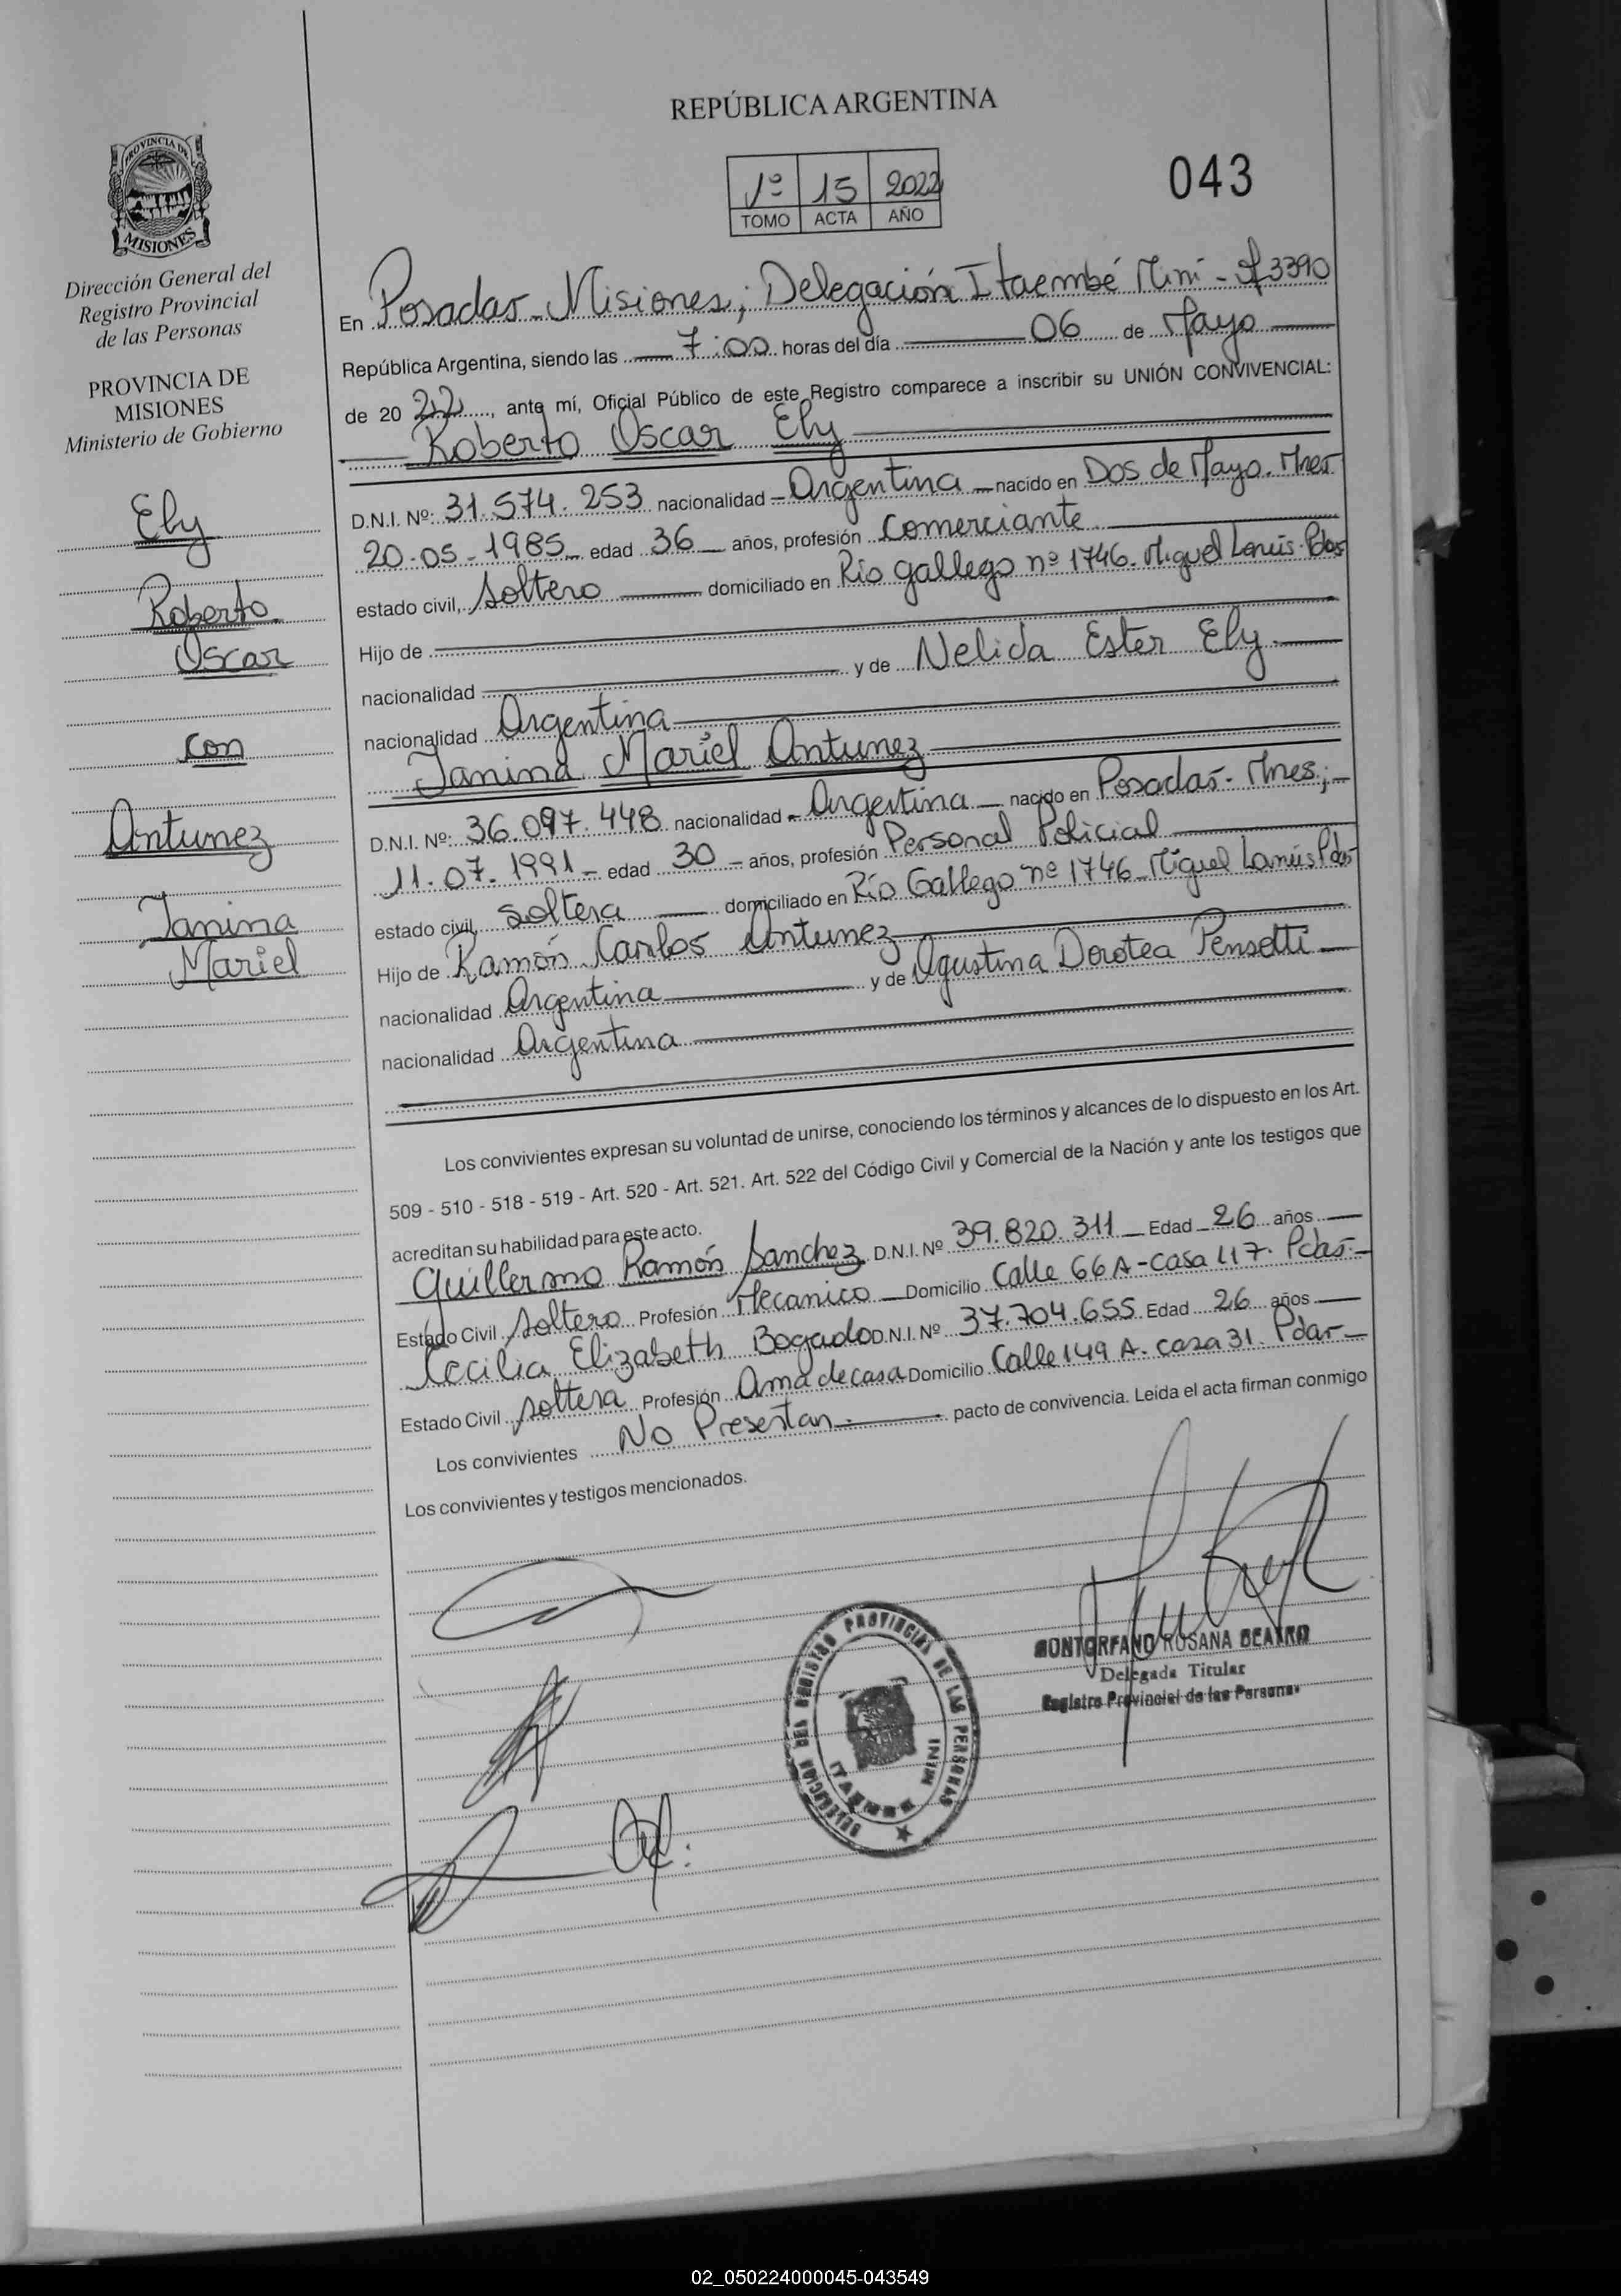 REPÚBLICA ARGENTINA
1º 15 2022
TOMO ACTA AÑO
043
PROVINCIA DE
MISIONES
Dirección General del
Registro Provincial
de las Personas
PROVINCIA DE
MISIONES
Ministerio de Gobierno
Ely
Roberto
Oscar
con
Antunez
Janina
Mariel
En Posadas - Misiones; Delegación Itaembé Miní - 3390
República Argentina, siendo las 7:00 horas del día 06 de Mayo
de 20 22, ante mí, Oficial Público de este Registro comparece a inscribir su UNIÓN CONVIVENCIAL:
Roberto Oscar Ely
D.N.I. Nº: 31.574.253 nacionalidad Argentina nacido en Dos de Mayo. Mnes
20-05-1985 edad 36 años, profesión Comerciante
estado civil, Soltero domiciliado en Río gallego nº 1746. Miguel Lanús. Pdas
Hijo de
nacionalidad y de Nelida Ester Ely
nacionalidad Argentina
Janina Mariel Antunez
D.N.I. Nº: 36.097.448 nacionalidad Argentina nacido en Posadas - Mnes;
11.07.1991 edad 30 años, profesión Personal Policial
estado civil, Soltera domiciliado en Río Gallego nº 1746 Miguel Lanús Pdas
Hijo de Ramón Carlos Antunez
nacionalidad Argentina y de Agustina Dorotea Pensotti
nacionalidad Argentina
Los convivientes expresan su voluntad de unirse, conociendo los términos y alcances de lo dispuesto en los Art.
509 - 510 - 518 - 519 - Art. 520 - Art. 521. Art. 522 del Código Civil y Comercial de la Nación y ante los testigos que
acreditan su habilidad para este acto.
Guillermo Ramón Sanchez D.N.I. Nº 39.820.311 Edad 26 años
Estado Civil Soltero Profesión Mecanico Domicilio Calle 66 A - casa 117. Pdas
Cecilia Elizabeth Bogado D.N.I. Nº 37.704.655 Edad 26 años
Estado Civil Soltera Profesión Ama de casa Domicilio Calle 149 A. casa 31. Pdas
Los convivientes No Presentan pacto de convivencia. Leida el acta firman conmigo
Los convivientes y testigos mencionados.
DELEGACION DEL REGISTRO PROVINCIAL DE LAS PERSONAS
ITAEMBE MINI
MONTORFANO ROSANA BEATRIZ
Delegada Titular
Registro Provincial de las Personas
02_050224000045-043549